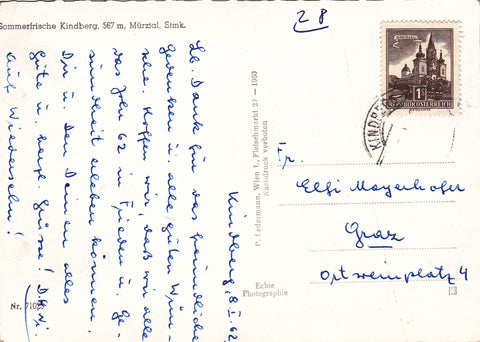 Sommerfrische Kindberg, 567 m, Mürztal, Stmk.
28
Kindberg, 8.I.62.
Lb. Dank für das freundliche
Gedenken u. alle guten Wün-
sche. Hoffen wir, daß wir alle
das Jahr 62 in Frieden u. Ge-
sundheit erleben können.
Dir u. Den Deinen alles
Gute u. herzl. Grüsse!
Auf Wiedersehn!
Nr. 7105
P. Ledermann, Wien I., Fleischmarkt 20 — 1960
Nachdruck verboten
Echte
Photographie
REPUBLIK ÖSTERREICH
KINDBERG
Fr.
Elfi Mayerhofer
Graz
Ortweinplatz 4